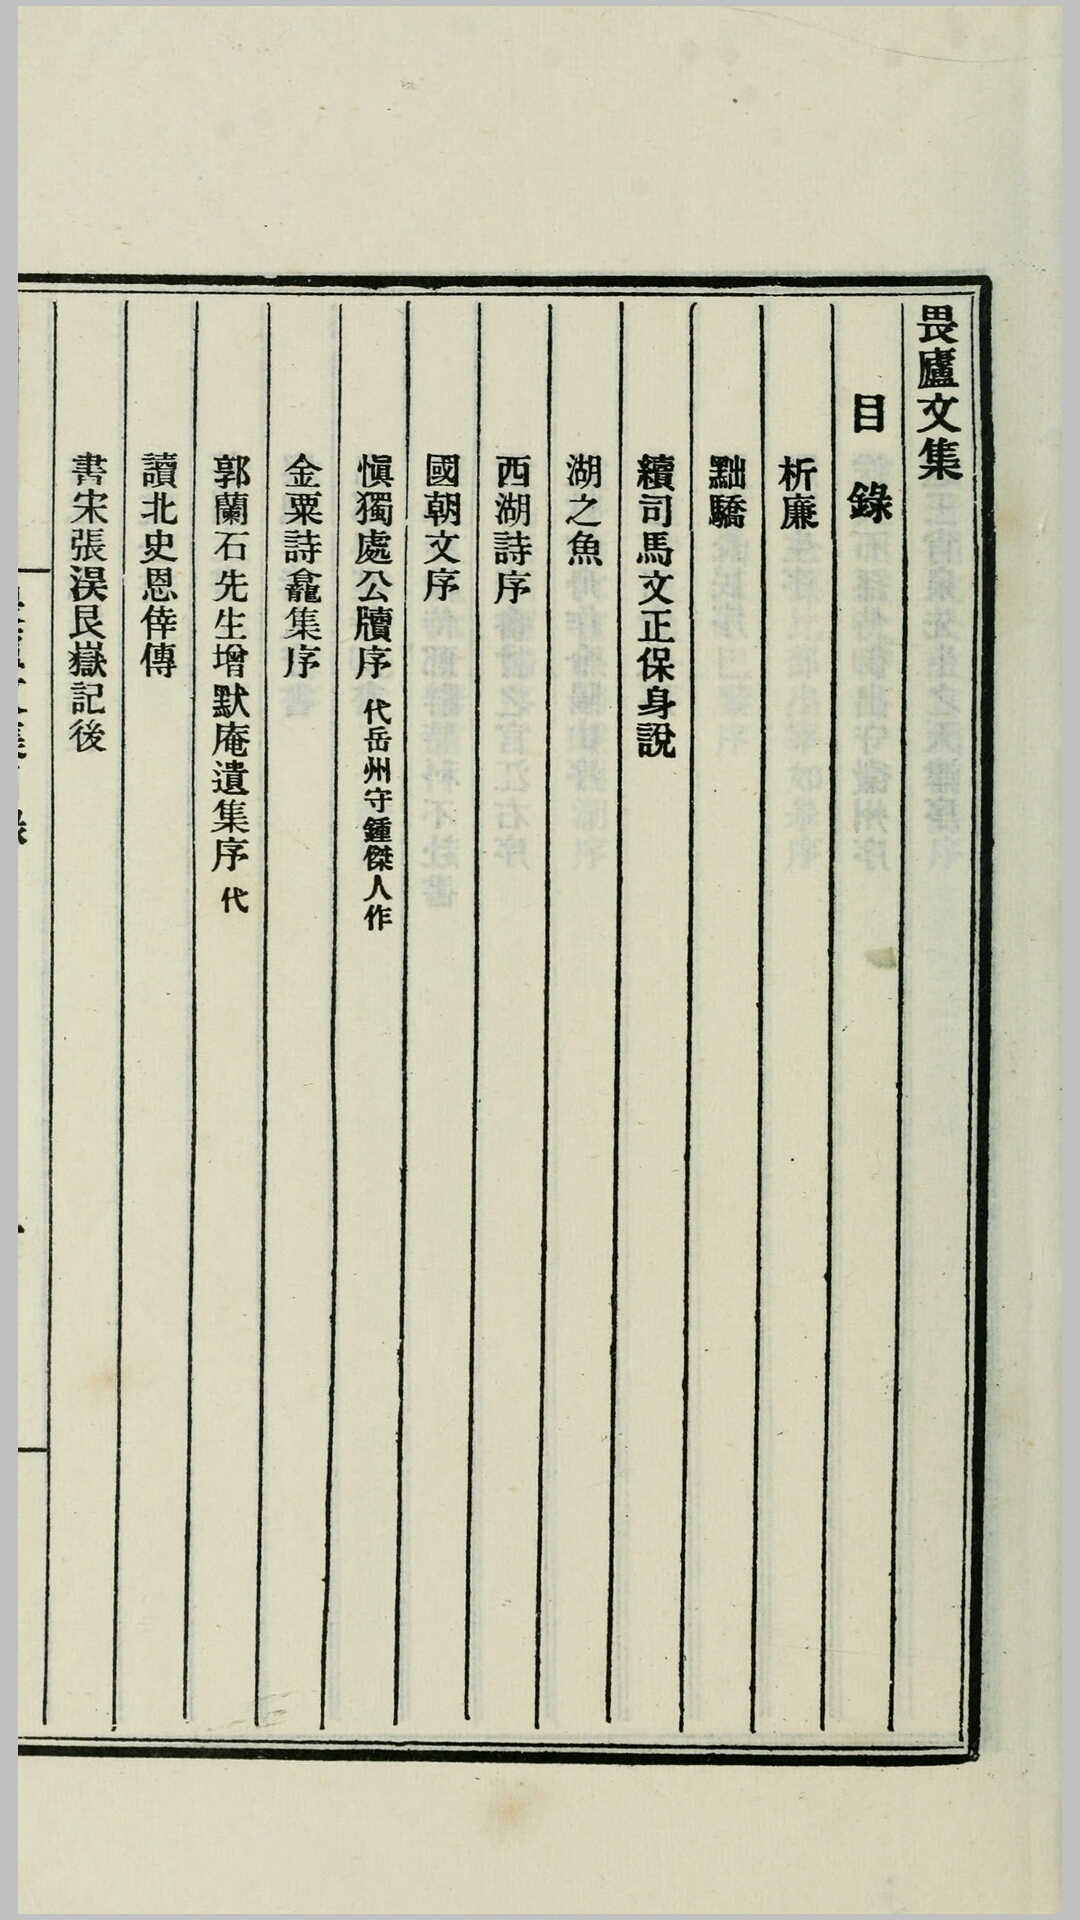 畏廬文集
目錄
析廉
黜驕
續司馬文正保身說
湖之魚
西湖詩序
國朝文序
愼獨處公牘序 代岳州守鍾傑人作
金粟詩龕集序
郭蘭石先生增默庵遺集序 代
讀北史恩倖傳
書宋張淏艮嶽記後